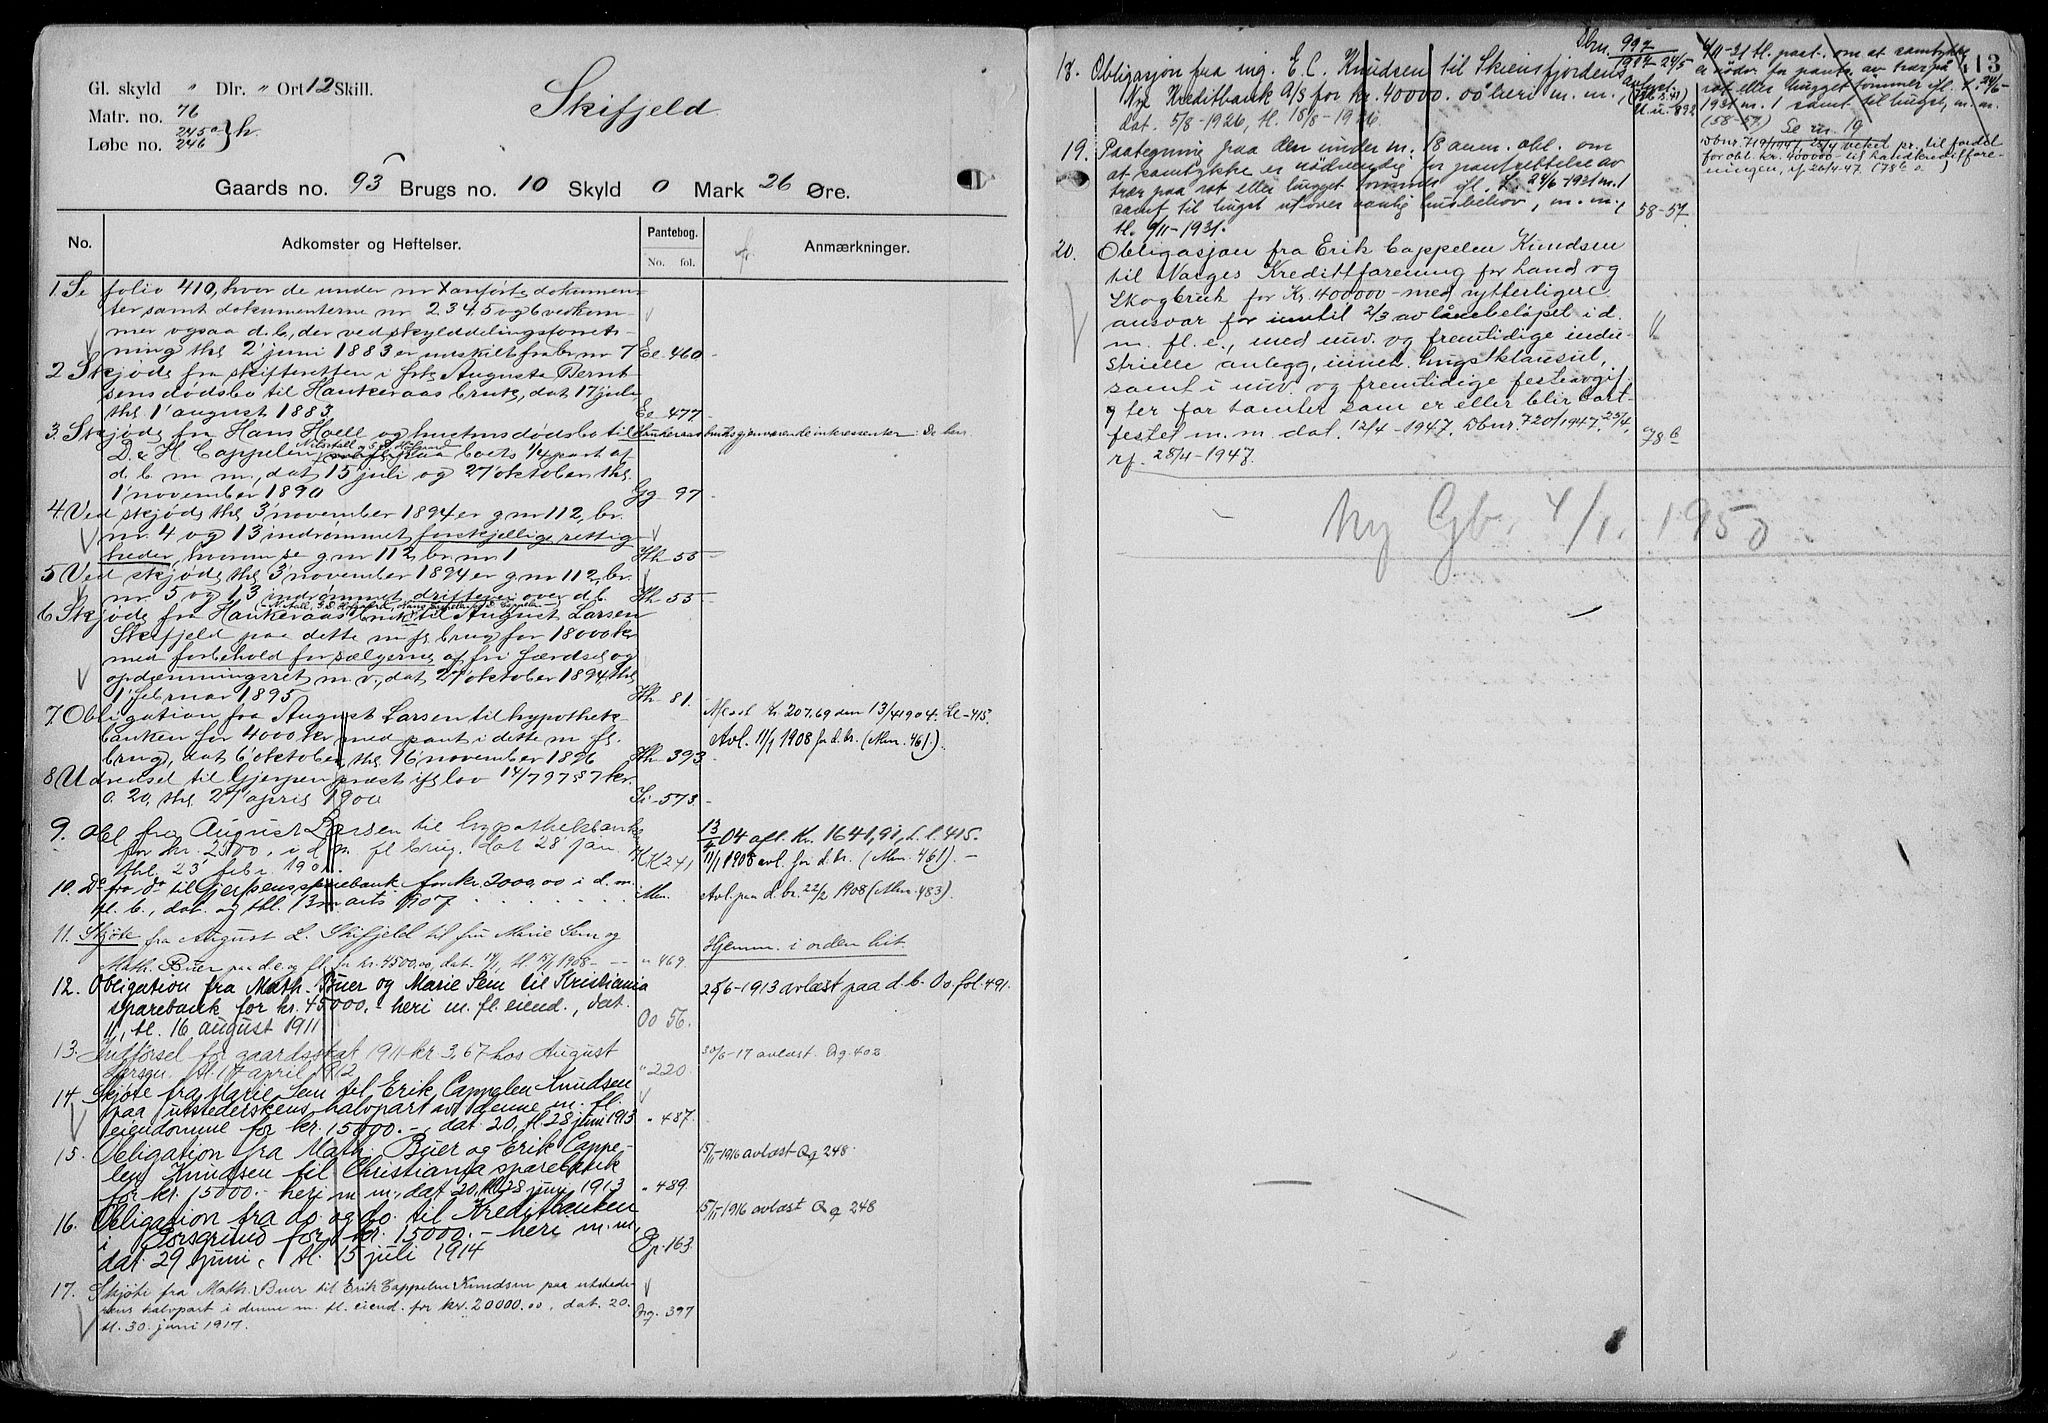 Gl. skyld " Dlr. " Ort 12 Skill.
Skifjeld
Matr. no. 76
Løbe no. 245a 246 } h.
Gaards no. 93 Brugs no. 10 Skyld 0 Mark 26 Øre.
No. Adkomster og Heftelser. Pantebog. No. fol. Anmærkninger.
1. Se folio 410, hvor de under nr 1 anførte dokumen-
ter samt dokumenterne nr 2 3 4 5 og 6 vedkom-
mer ogsaa d. b, der ved skylddelingsforret-
ning thl 2' juni 1883 er udskilt fra br nr 7 Ee 460
2 Skjøde fra skifteretten i frk Augusta Bernt-
sens dødsbo til Hankevaas brug, dat 17 juli,
thl 1' august 1883. Ee 477
3. Skjøde fra Hans Holl og hustrus dødsbo til Hankeraas brugs gjenværende interessenter
D & H Cappelen, paa boets 1/4 part af
d. b. m. m, dat 15 juli og 27' oktober, thl
1' november 1890 Gg 97
4. Ved skjøde thl 3' november 1894 er g nr 112, br.
nr. 4 og 13 indrømmet forskjellige rettig-
heder, hvorom se g nr 112, br. nr. 1 Hh 55
5 Ved skjøde thl 3' november 1894 er g nr 112, br.
nr. 5 og 13 indrømmet driftevei over d b. Hh 55
6 Skjøde fra Hankevaas brug til August Larsen
Skifjeld paa dette m fl brug for 18000 kr
med forbehold for sælgerne af fri færdsel og
opdæmningsret m. v., dat 27' oktober 1894, thl
1' februar 1895 Hh 81.
7. Obligation fra August Larsen til hypothek-
banken for 4000 kr med pant i dette m fl.
brug, dat 6' oktober, thl 16' november 1896 Hh 393
Afl kr 207.69 den 13/4 1904. Ll-415.
Avl. 11/1 1908 for d. br. (Mm. 461).
8 Udredsel til Gjerpen præst ifl lov 14/7 97 § 7 kr.
0. 20, thl 27' april 1900 Ii 573.
9. Obl fra August Larsen til hypothekbanken
for kr. 2500, i d. m. fl brug. dat 28' jan.
thl. 23' febr. 1901. Kk 241
13/4 04 afl. Kr. 1641,91, L. l. 415.
11/1 1908 avl. for d. br. (Mm. 461). -
10. Do fra do til Gjerpens sparebank for kr. 2000,00 i d. m.
fl. b., dat. og thl. 13 marts 1907 Mm.
Avl. paa d. br. 22/2 1908 (Mm. 483).
11. Skjøte fra August L. Skifjeld til fru Marie Sem og
Math. Buer paa d. e. og fl. for kr. 4500.00, dat. 14/1, tl 15/1 1908 - " 469.
Hjemm. i orden hit.
12. Obligation fra Math. Buer og Marie Sem til Kristiania
sparebank for kr. 45000.- heri m. fl. eiend., dat.
11, tl. 16 august 1911 Oo 56.
25/6-1913 avlæst paa d. b. Oo fol. 491.
13. Indførsel for gaardsskat 1911 kr 3,67 hos August
Larsen. tl. 17 april 1912 " 220.
30/6-17 avlæst. Qq. 402
14. Skjøte fra Marie Sem til Erik Cappelen Knudsen
paa utstederskens halvpart av denne m. fl.
eiendomme for kr. 15000.-, dat 20, tl. 28 juni 1913 " 487.
15. Obligation fra Math. Buer og Erik Cappe-
len Knudsen til Christiania sparebank
for kr. 15000.- heri m m., dat 20, tl. 28 juni 1913 " 489.
15/11-1916 avlæst Qq 248.
16. Obligation fra do. og do. til Kreditbanken
i Porsgrund for kr. 15000.- heri m. m,
dat. 29 juni, tl. 15 juli 1914 Pp. 163
15/11-1916 avlæst Qq 248
17. Skjøte fra Math. Buer til Erik Cappelen Knudsen paa utstede-
rens halvpart i denne m. fl. eiend. for kr. 20000.00, dat. 20.
tl. 30. juni 1917. Qq. 397
13
18. Obligasjon fra ing. E. C. Knudsen til Skiensfjordens
Nye Kreditbank A/S for kr. 40000.00 heri m. m.,
dat. 5/8-1926, tl. 18/8-1926.
Dbnr. 997/1947 24/5
avlyst
U. u. 892
6/11-31 tl. paat. om at samtykke
er nødv. for pants. av trær på
rot eller hugget tømmer jfl. L. 24/6-
1931 m. 1 samt til hugst, m. m.
(58-57)
Se nr. 19
19. Paategning paa den under nr. 18 anm. obl. om
at samtykke er nødvendig for pantsettelse av
trær paa rot eller hugget tømmer jfl. L. 24/6-1931 nr. 1
samt til hugst utover vanlig husbehov, m. m.,
tl. 6/11-1931. 58-57.
Dbnr. 719/1947, 25/4 veket pr. til fordel
for obl. kr. 400000- til Landkreditfore-
ningen, rf 28/4-47. (78b o.)
20. Obligasjon fra Erik Cappelen Knudsen
til Norges Kredittforening for Land og
Skogbruk for Kr. 400000- med ytterligere
ansvar for inntil 2/3 av lånebeløpet i d.
m. fl. e., med nuv. og fremtidige indu-
strielle anlegg, innt. hugstklausul,
samt i nuv. og fremtidige festeavgif-
ter for tomter som er eller blir bort-
festet m. m. dat. 12/4-1947. Dbnr. 720/1947, 25/4,
rf. 28/4-1947. 78b
Ny Gb. 4/1. 1950